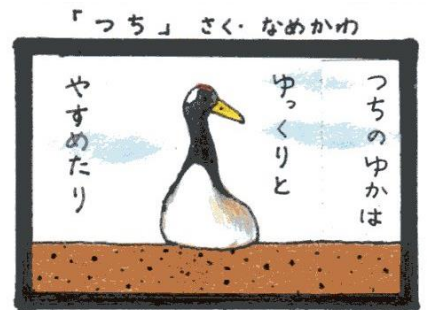 「つち」さく・なめかわ
つちのゆかは
ゆっくりと
やすめたり